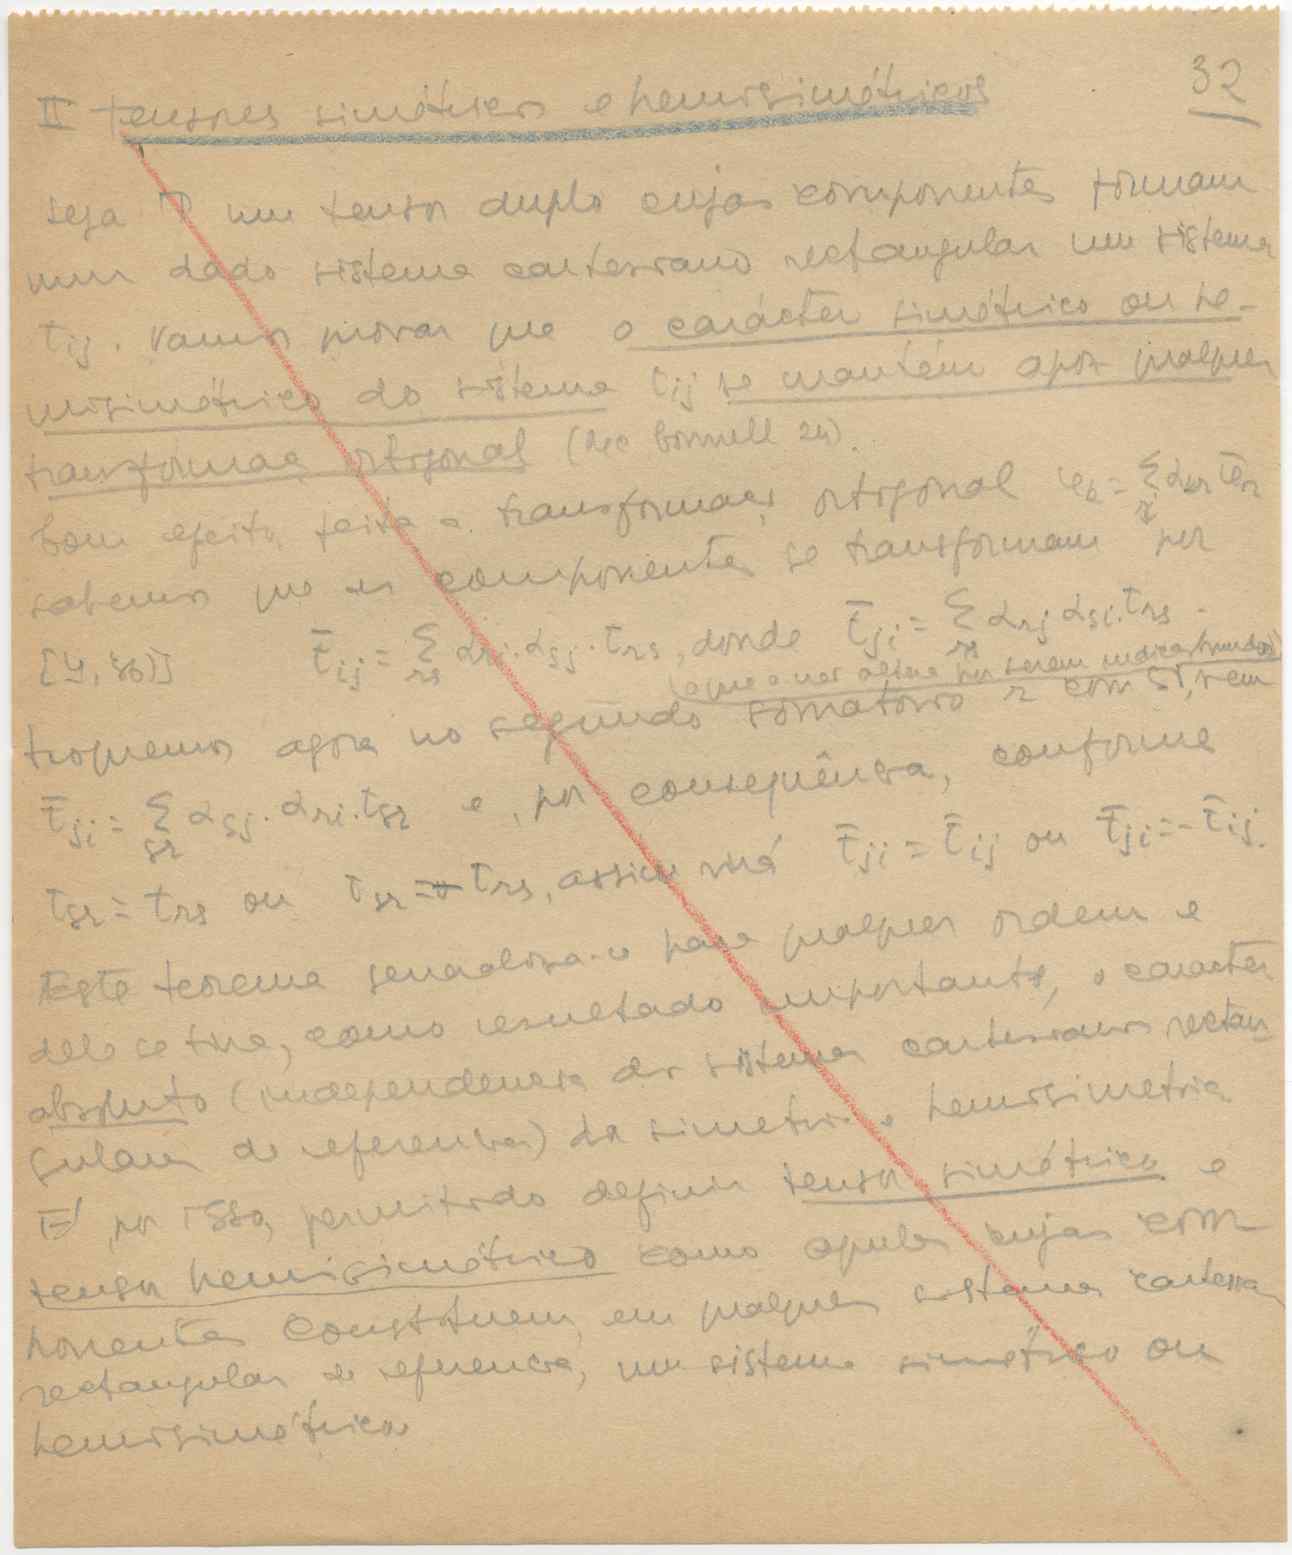 32
II Tensores simétricos e hemisimétricos
Seja T um tensor duplo cujas componentes formam
num dado sistema cartesiano rectangular um sistema
tij. Vamos provar que o carácter simétrico ou he-
misimétrico do sistema tij se mantém após qualquer
transformação ortogonal
Com efeito, feita a transformação ortogonal
sabemos que as componentes se transformam por
t̄ij = Σrs αri.αsj.trs, donde t̄ji = Σrs αrj αsi.trs.
(o que nada altera por serem índices mudos)
troquemos agora no segundo somatório r com s, vem
t̄ji = Σsr αsj.αri.tsr e, por consequência, conforme
tsr = trs ou tsr = - trs, assim virá t̄ji = t̄ij ou t̄ji = - t̄ij.
Este teorema generaliza-se para qualquer ordem e
dele se tira, como resultado importante, o caracter
absoluto (independencia dos sistemas cartesianos rectan
gulares de referencia) da simetria e hemisimetria
É, por isso, permitido definir tensor simétrico e
tensor hemisimétrico como aqueles cujas com
ponentes constituem, em qualquer sistema cartesiano
rectangular de referencia, um sistema simétrico ou
hemisimétrico